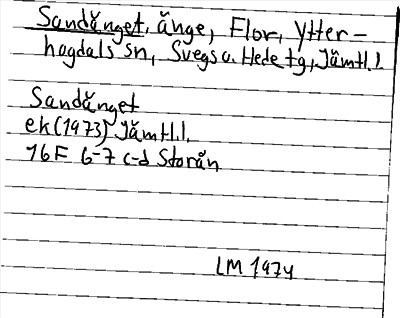 Sandänget, änge, Flor, Ytter-
hogdals sn, Svegs o. Hede tg, Jämtl. l
Sandänget
ek (1973) Jämtl.l.
16F 6-7 c-d Storån
LM 1974